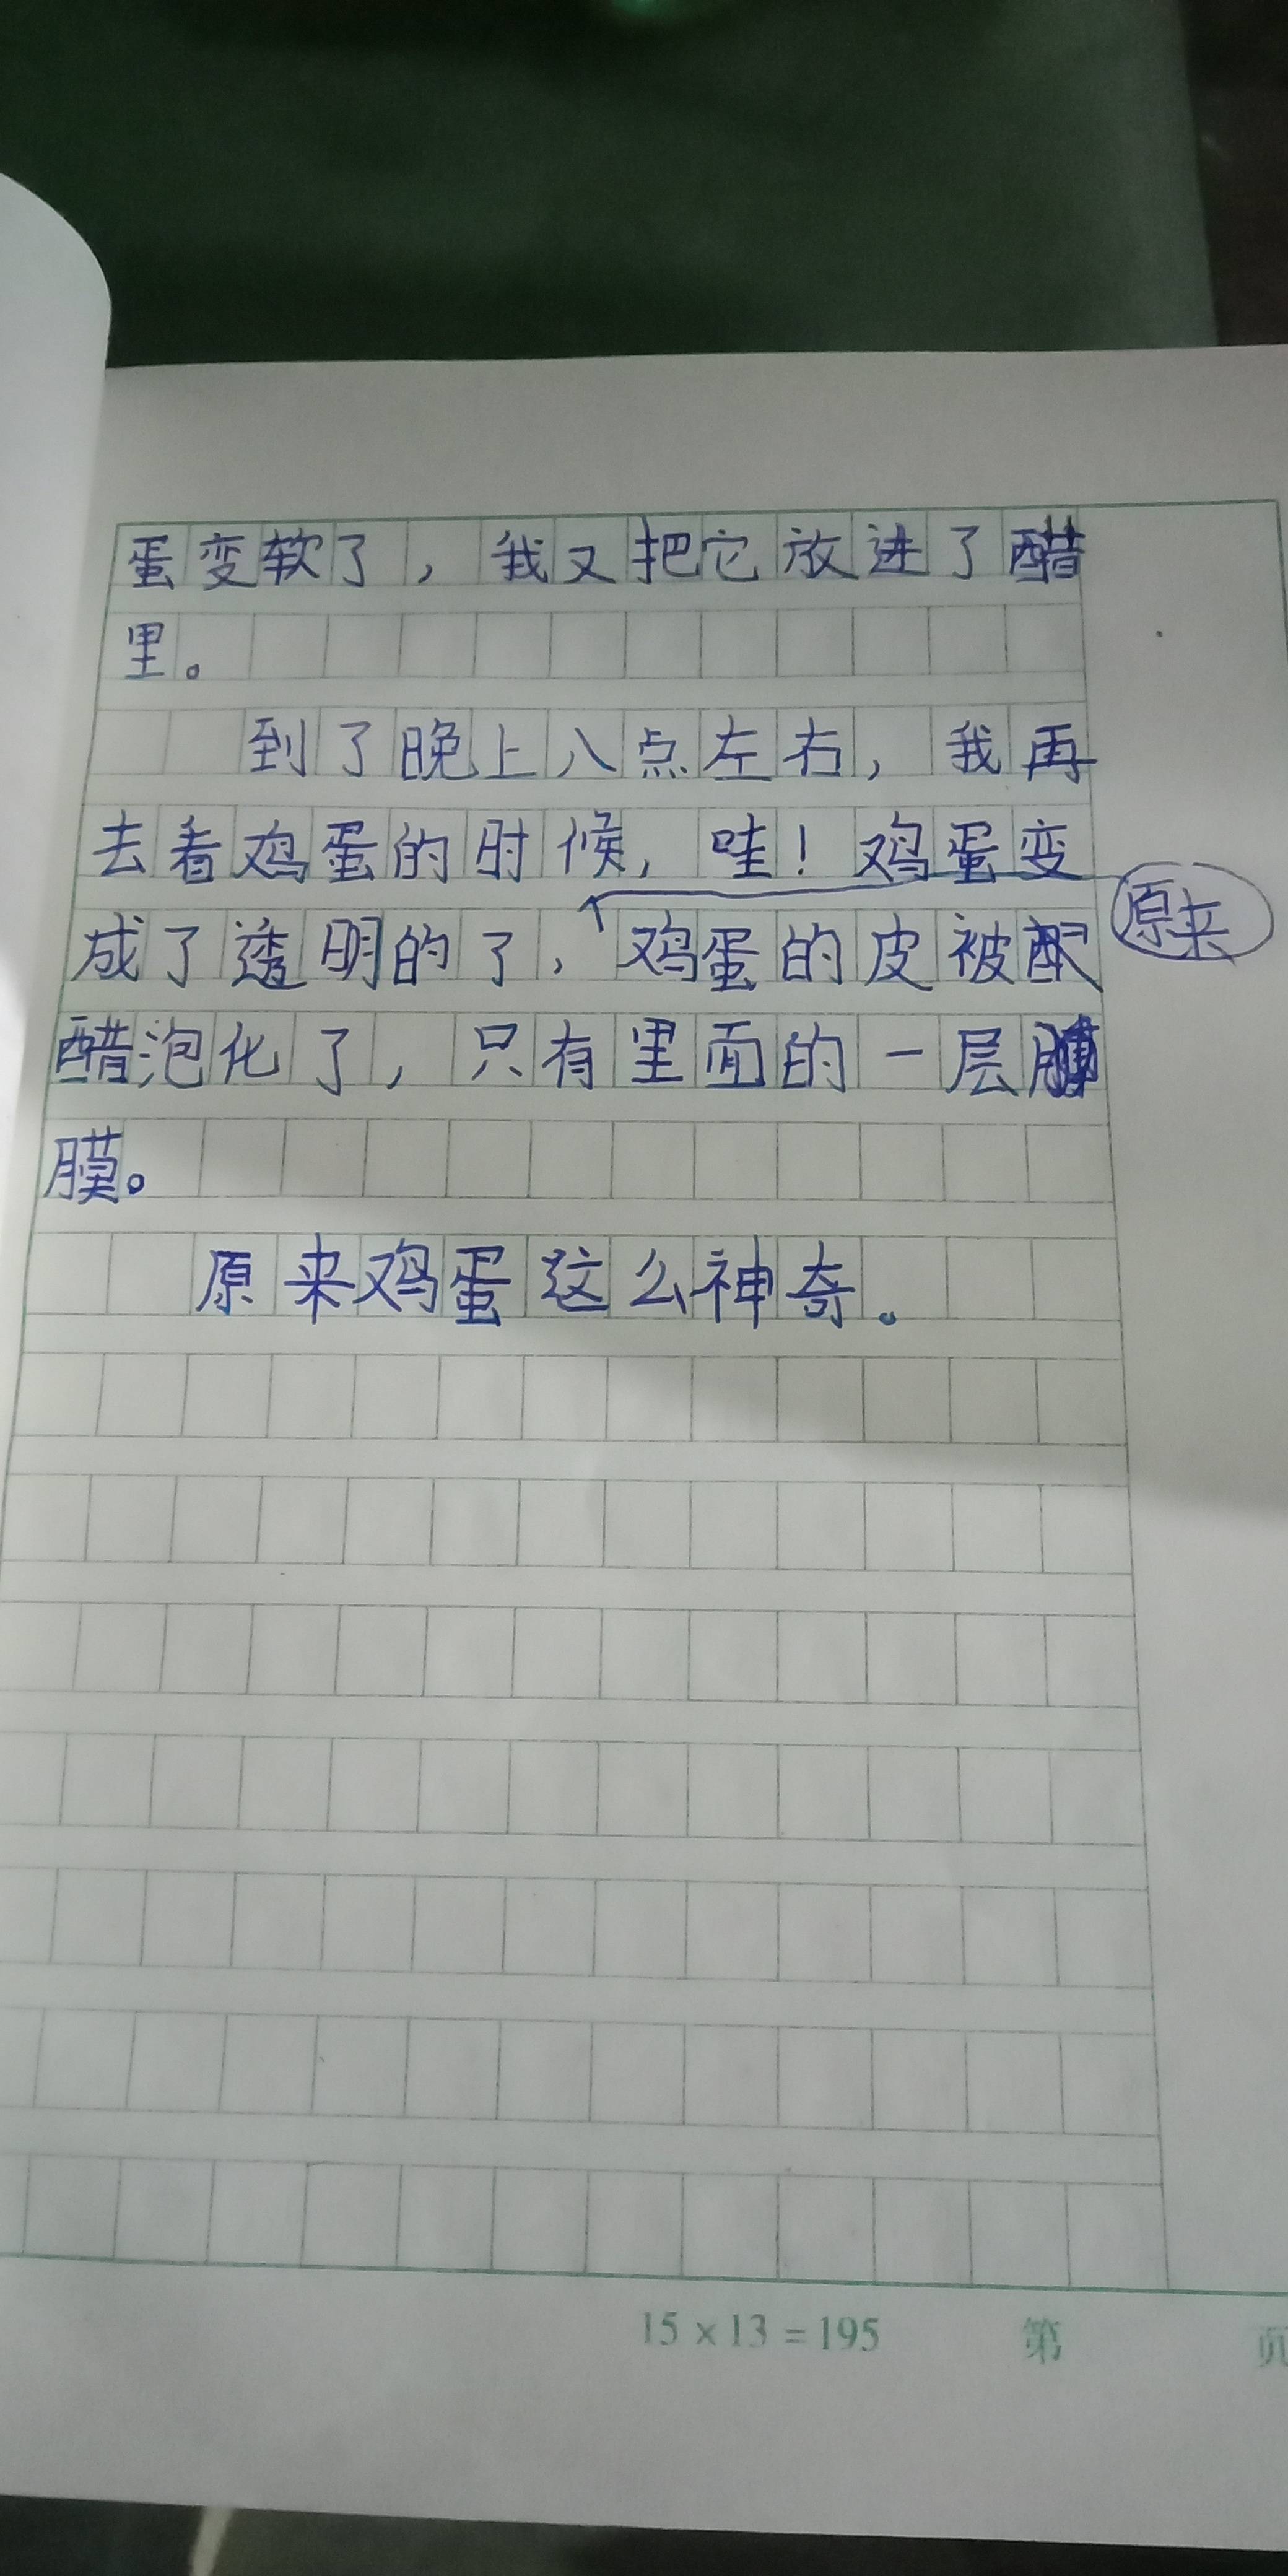 蛋变软了，我又把它放进了醋
里。
到了晚上八点左右，我再
去看鸡蛋的时候，哇！鸡蛋变
原来
成了透明的了，鸡蛋的皮被
醋泡化了，只有里面的一层
膜。
原来鸡蛋这么神奇。
15×13=195 第 页